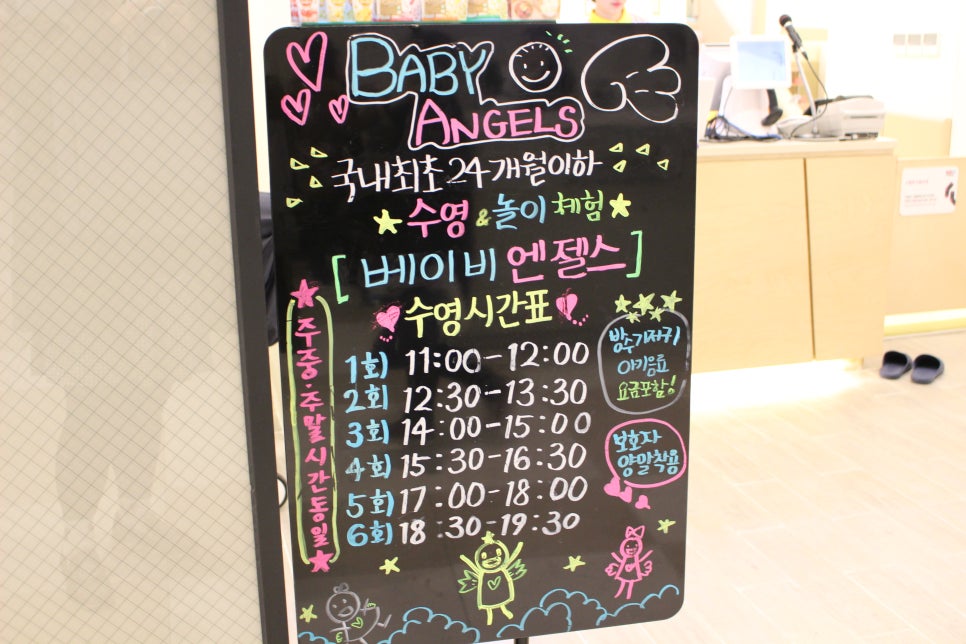 BABY
ANGELS
국내최초 24개월이하
수영 & 놀이 체험
[베이비 엔젤스]
수영시간표
주중·주말시간동일
1회) 11:00-12:00
2회 12:30-13:30
3회) 14:00-15:00
4회) 15:30-16:30
5회) 17:00-18:00
6회) 18:30-19:30
방수기저귀
아기음료
요금포함!
보호자
양말착용